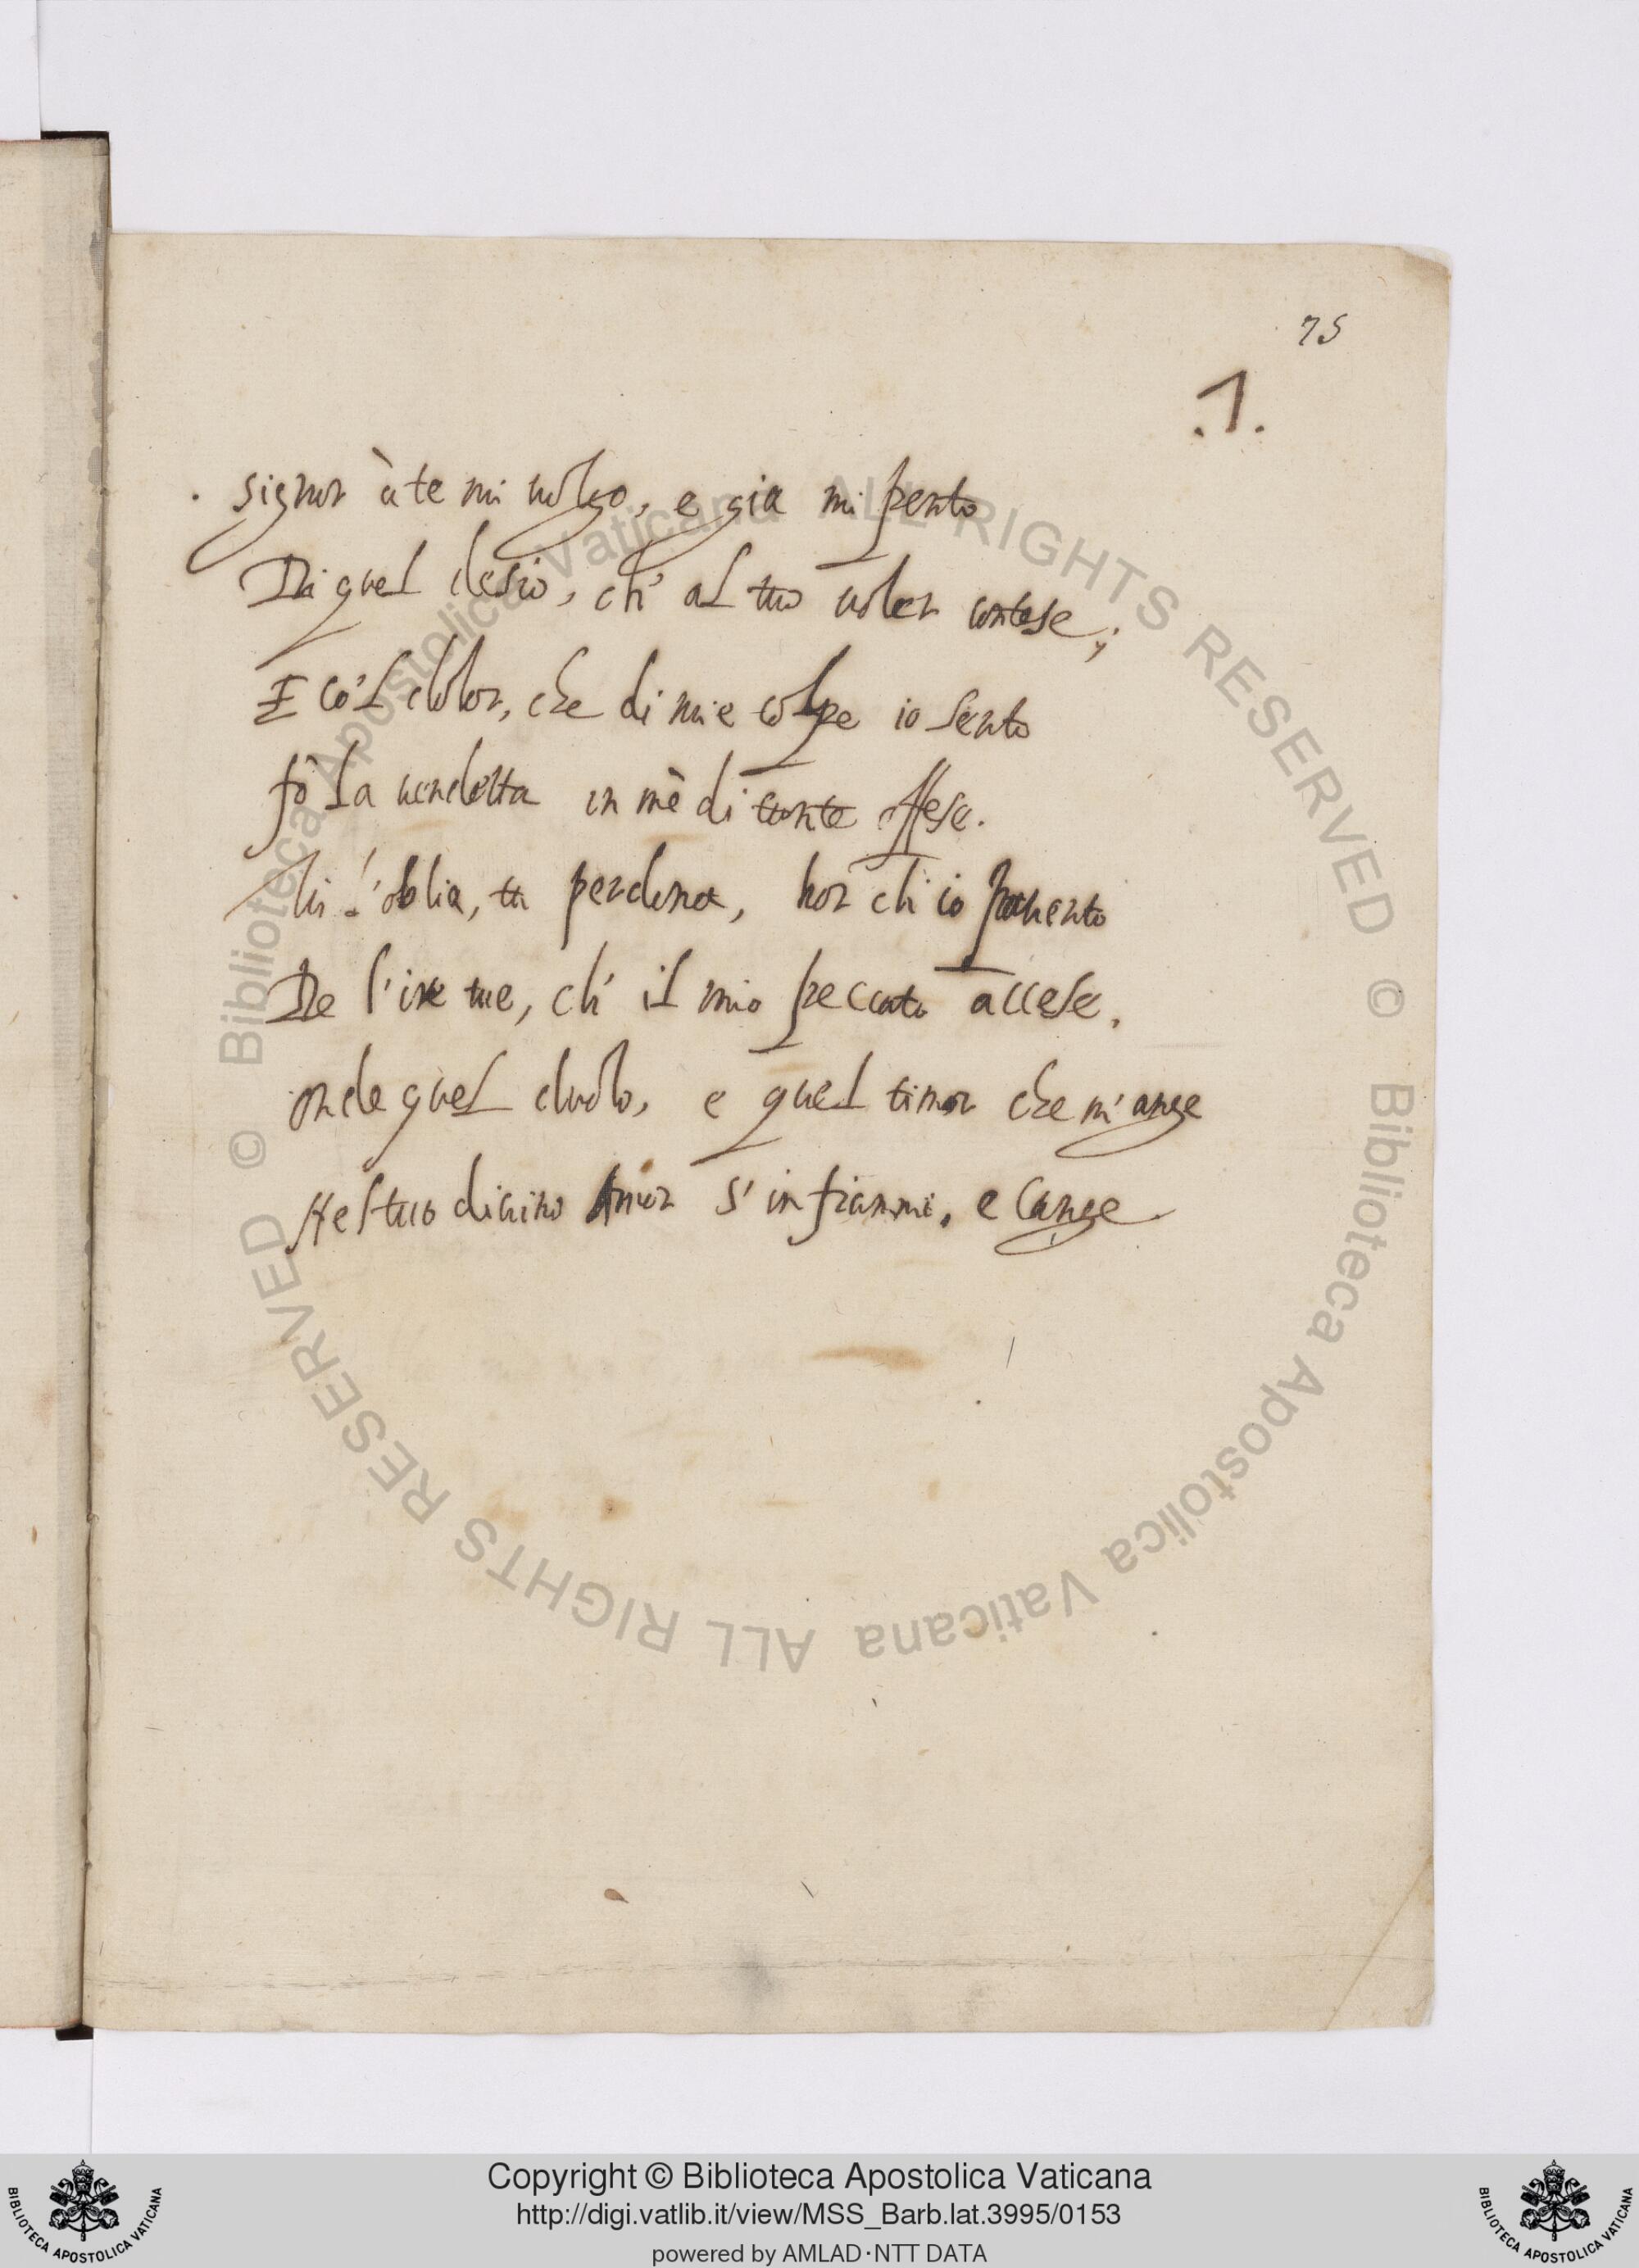 75
.1.
. Signor à te mi uolgo, e gia mi pento
Di quel desio, ch' al tuo uoler contese;
E co'l dolor, che di mie colpe io sento
fò la uendetta in mè di tante offese.
l'oblia, tu perdona, hor ch' io pauento
De l'ire tue, ch' il mio peccato accese.
onde quel duolo, e quel timor che m'ange
Nel tuo diuino Amor s'infiammi, e cange.
© Biblioteca Apostolica Vaticana ALL RIGHTS RESERVED
© Biblioteca Apostolica Vaticana ALL RIGHTS RESERVED
Copyright © Biblioteca Apostolica Vaticana
http://digi.vatlib.it/view/MSS_Barb.lat.3995/0153
powered by AMLAD·NTT DATA
BIBLIOTECA APOSTOLICA VATICANA
BIBLIOTECA APOSTOLICA VATICANA